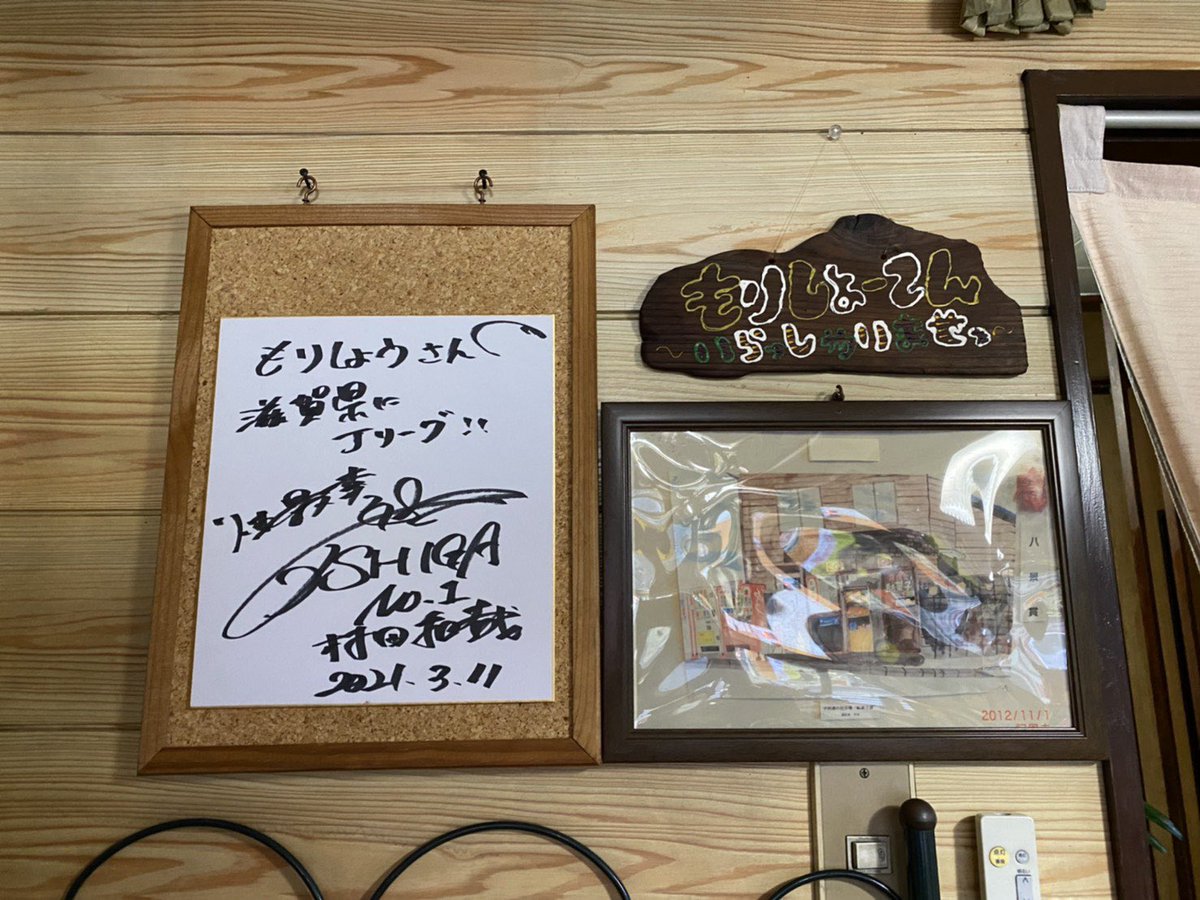 もりしょうさん
滋賀県に
Jリーグ!!
SHIGA
No.1
村田和哉
2021.3.11
もりしょーてん
いらっしゃいませっ
八景賞
2012/11/1